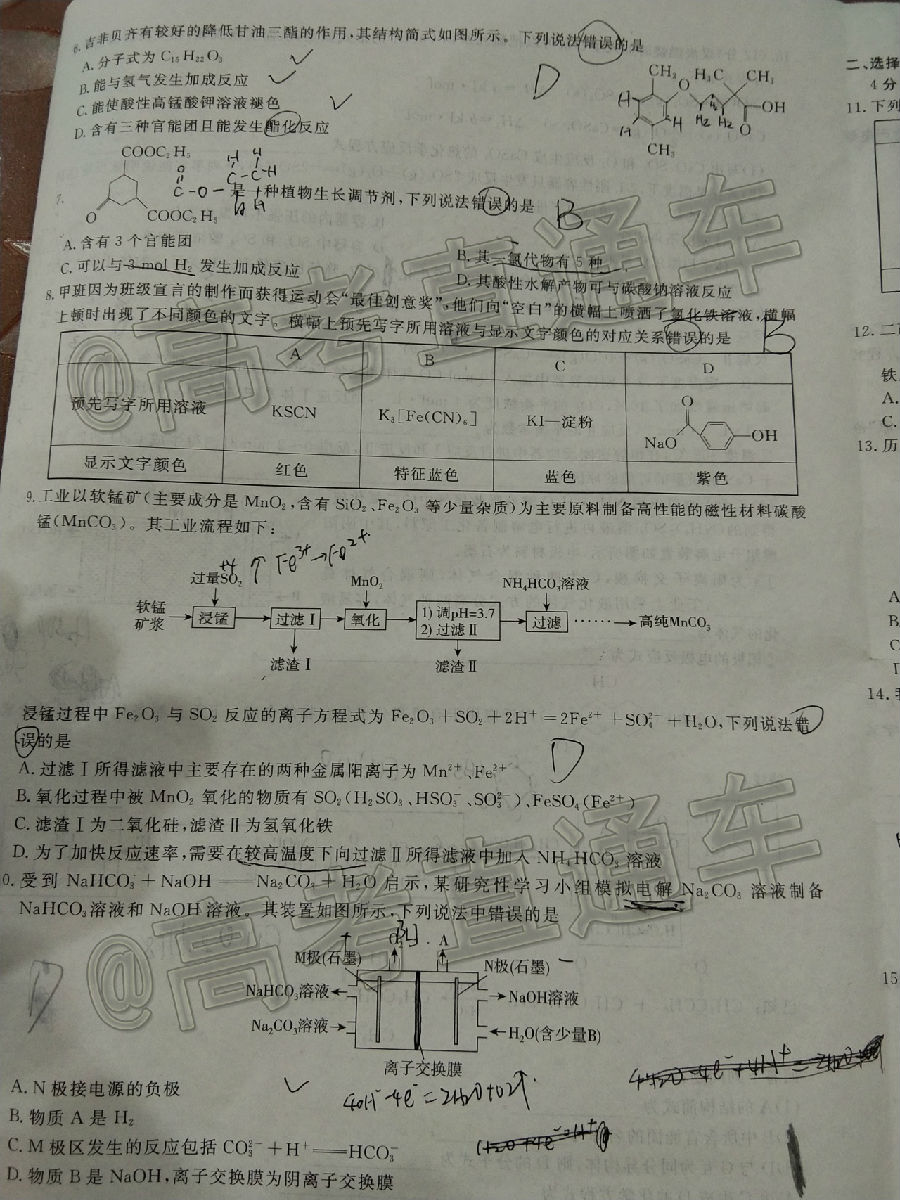 6.吉非贝齐有较好的降低甘油三酯的作用,其结构简式如图所示。下列说法错误的是
A.分子式为 C₁₅H₂₂O₃
B.能与氢气发生加成反应
C.能使酸性高锰酸钾溶液褪色
D.含有三种官能团且能发生酯化反应
D
CH₃ H₃C CH₃
O OH
H H H₂ H₂ O
H
CH₃
COOC₂H₅
O
COOC₂H₅
7. 是一种植物生长调节剂,下列说法错误的是 B
A.含有3个官能团 B.其一氯代物有5种
C.可以与 3 mol H₂ 发生加成反应 D.其酸性水解产物可与碳酸钠溶液反应
8.甲班因为班级宣言的制作而获得运动会“最佳创意奖”,他们向“空白”的横幅上喷洒了氯化铁溶液,横幅
上顿时出现了不同颜色的文字。横幅上预先写字所用溶液与显示文字颜色的对应关系错误的是 B
A B C D
预先写字所用溶液 KSCN K₃[Fe(CN)₆] KI—淀粉 O NaO OH
显示文字颜色 红色 特征蓝色 蓝色 紫色
9.工业以软锰矿(主要成分是 MnO₂,含有 SiO₂、Fe₂O₃ 等少量杂质)为主要原料制备高性能的磁性材料碳酸
锰(MnCO₃)。其工业流程如下:
+4 ↑ Fe³⁺→Fe²⁺
过量SO₂ MnO₂ NH₄HCO₃溶液
软锰矿浆 浸锰 过滤Ⅰ 氧化 1) 调pH=3.7 2) 过滤Ⅱ 过滤 …… 高纯MnCO₃
滤渣Ⅰ 滤渣Ⅱ
浸锰过程中 Fe₂O₃ 与 SO₂ 反应的离子方程式为 Fe₂O₃+SO₂+2H⁺=2Fe²⁺+SO₄²⁻+H₂O,下列说法错
误的是
D
A.过滤Ⅰ所得滤液中主要存在的两种金属阳离子为 Mn²⁺、Fe²⁺
B.氧化过程中被 MnO₂ 氧化的物质有 SO₂(H₂SO₃、HSO₃⁻、SO₃²⁻)、FeSO₄(Fe²⁺)
C.滤渣Ⅰ为二氧化硅,滤渣Ⅱ为氢氧化铁
D.为了加快反应速率,需要在较高温度下向过滤Ⅱ所得滤液中加入 NH₄HCO₃ 溶液
0.受到 NaHCO₃+NaOH══Na₂CO₃+H₂O 启示,某研究性学习小组模拟电解 Na₂CO₃ 溶液制备
NaHCO₃溶液和 NaOH 溶液。其装置如图所示,下列说法中错误的是
D
+ A
M极(石墨) N极(石墨) −
NaHCO₃溶液 NaOH溶液
Na₂CO₃溶液 H₂O(含少量B)
离子交换膜
A.N 极接电源的负极
4OH⁻-4e⁻=2H₂O+O₂↑
B.物质 A 是 H₂
C.M 极区发生的反应包括 CO₃²⁻+H⁺══HCO₃⁻
D.物质 B 是 NaOH,离子交换膜为阴离子交换膜
二、选择
4分
11.下列
12.二
铁
A.
C.
13.历
A
B
C
14.
15
@高考直通车
@高考直通车